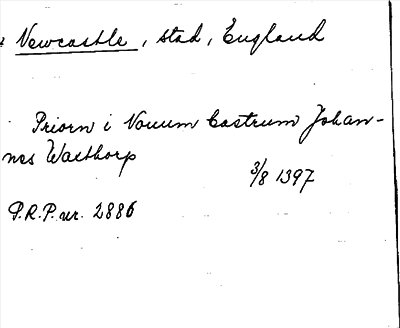 Newcastle, stad, England
Priorn i Novum Castrum Johan-
nes Walthorp
3/8 1397
P.R.P. nr. 2886